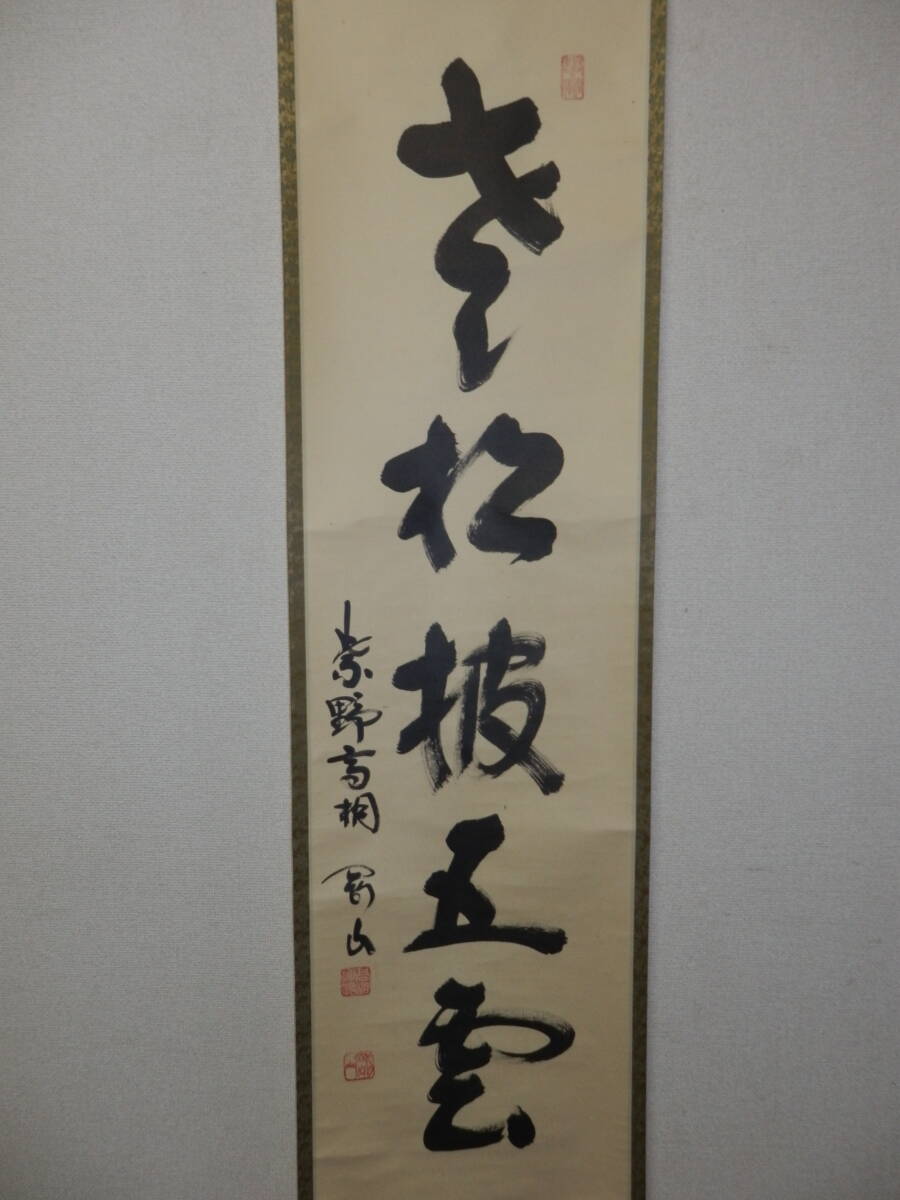 老松披五雲
紫野高桐 剛山